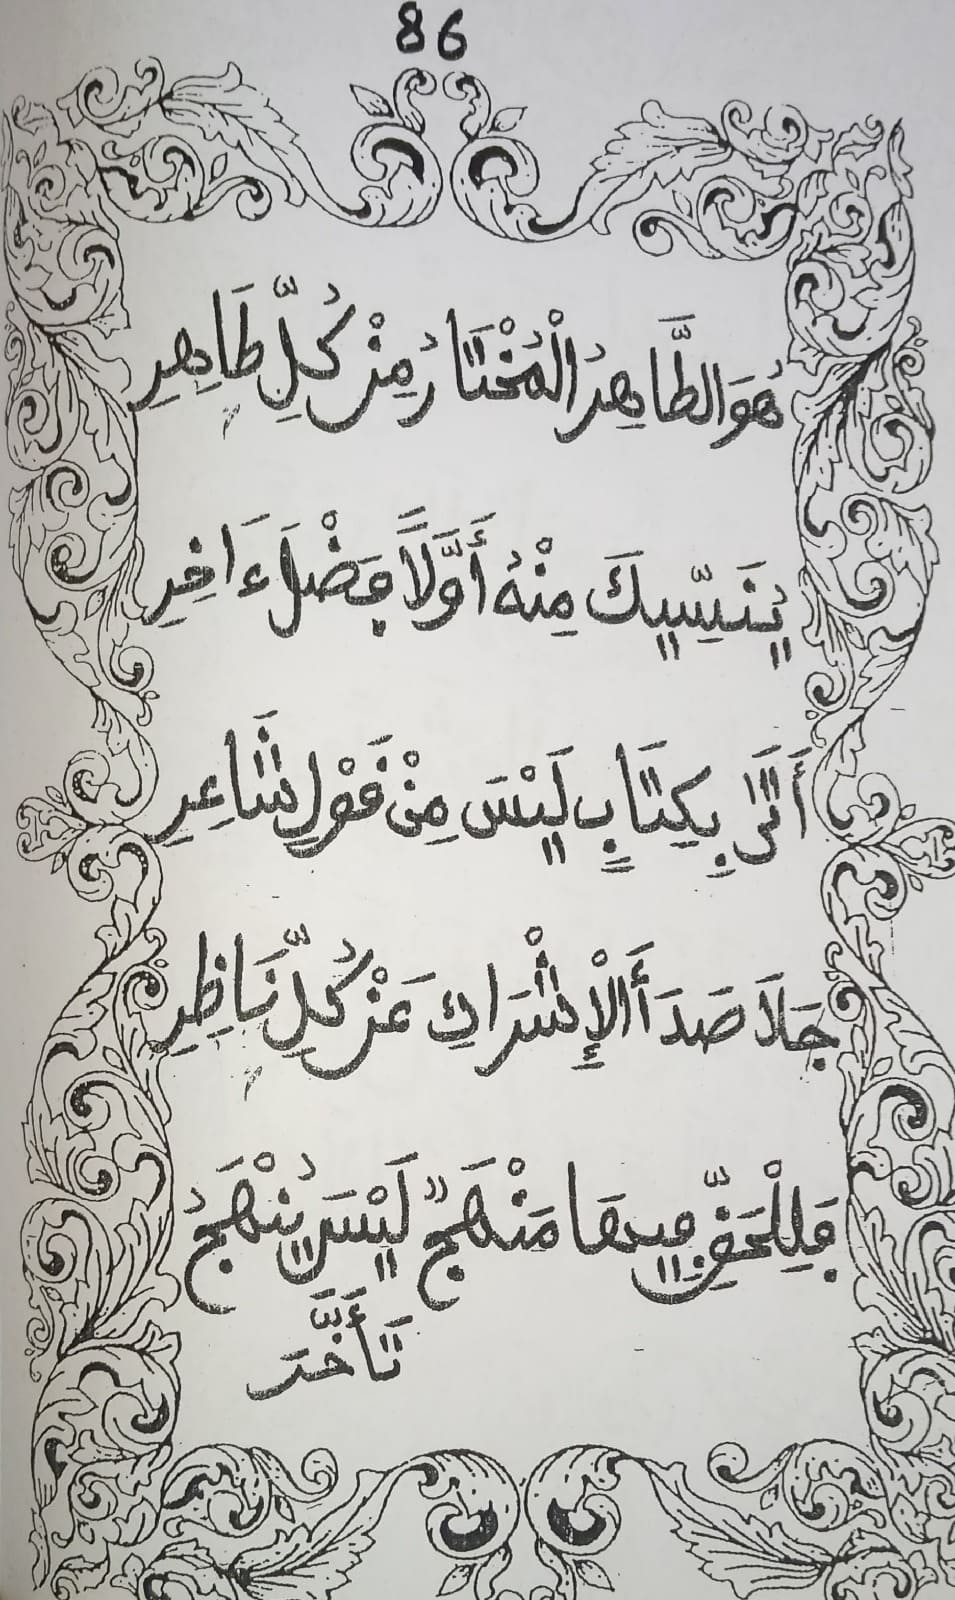 86
هُوَ الطَّاهِرُ الْمُخْتَارُ مِنْ كُلِّ طَاهِرِ
يُنَسِّيكَ مِنْهُ أَوَّلاً فَضْلَ ءَاخِرِ
أَتَىٰ بِكِتَابٍ لَيْسَ مِنْ قَوْلِ شَاعِرِ
جَلَا صَدَأَ الْإِشْرَاكِ عَنْ كُلِّ نَاظِرِ
فَلِلْحَقِّ فِيهَا مَنْهَجٌ لَيْسَ يُنْهَجُ
تَأَخَّرَ